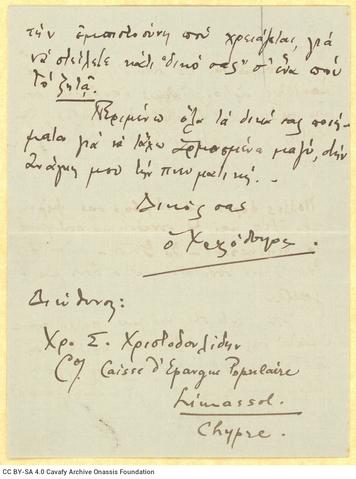 τὴν ἐμπιστοσύνη ποὺ χρειάζεται, γιὰ
νὰ στείλετε κάτι "δικό σας" σ' ἕνα ποὺ
τὸ ζητᾷ.
Περιμένω ὅλα τὰ δικά σας ποιή-
ματα γιὰ νὰ τἄχω μαζύ, στὴν
ἀνάγκη μου τὴν πνευματική. -
Δικός σας
ὁ
Διεύθυνσις:
Χρ. Σ. Χριστοδουλίδην
C/o Caisse d'Epargne Populaire
Limassol.
Chypre.
CC BY-SA 4.0 Cavafy Archive Onassis Foundation